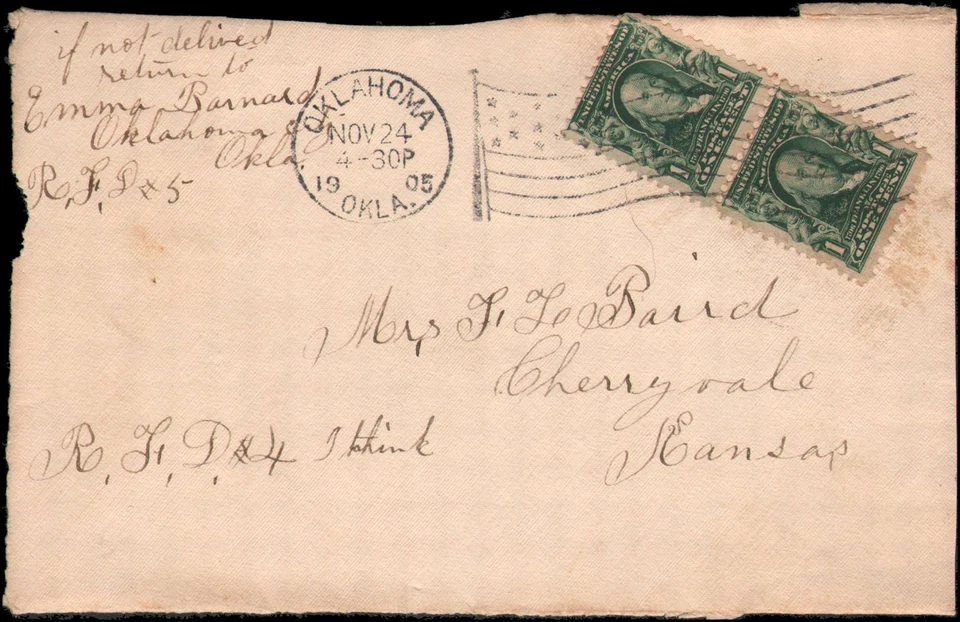 if not delived
return to
Emma Barnard
Oklahoma Cy
Okla.
R.F.D #5
OKLAHOMA
NOV 24
4-30P
1905
OKLA.
UNITED STATES OF
AMERICA
1
FRANKLIN
POSTAGE
ONE CENT
1
UNITED STATES OF
AMERICA
1
FRANKLIN
POSTAGE
ONE CENT
1
Mrs F L Baird
Cherryvale
Kansas
R.F.D. #4 I think